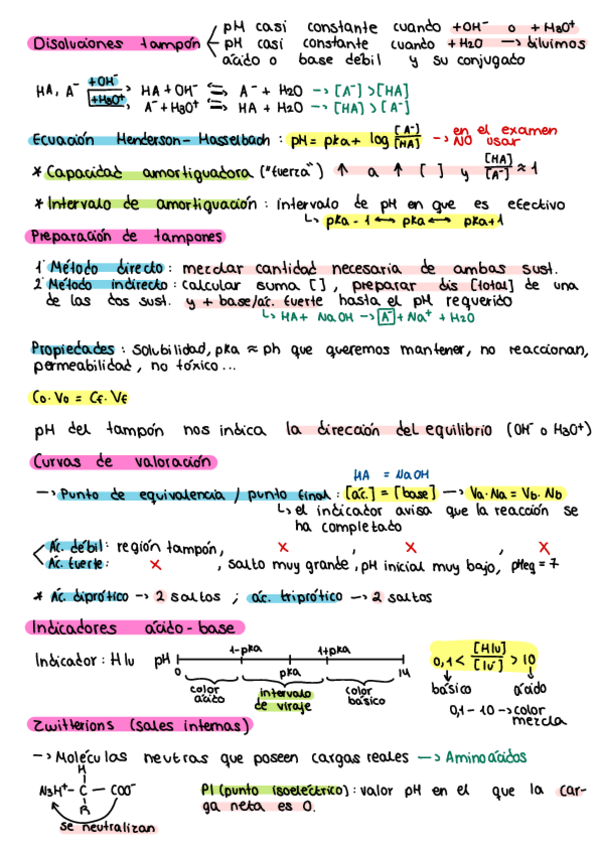 Disoluciones tampón < pH casi constante cuando +OH⁻ o +H3O⁺
pH casi constante cuando +H2O → diluimos
ácido o base debil y su conjugado
HA, A⁻ +OH⁻ HA + OH⁻ ⇌ A⁻ + H2O → [A⁻] > [HA]
+H3O⁺ A⁻ + H3O⁺ ⇌ HA + H2O → [HA] > [A⁻]
Ecuación Henderson-Hasselbach: pH = pka + log [A⁻]/[HA] → en el examen NO usar
* Capacidad amortiguadora ("fuerza") ↑ a ↑ [ ] y [HA]/[A⁻] ≈ 1
* Intervalo de amortiguación: intervalo de pH en que es efectivo
↳ pka - 1 ↔ pka ↔ pka+1
Preparación de tampones
1 Método directo: mezclar cantidad necesaria de ambas sust.
2 Método indirecto: calcular suma [ ], preparar dis [total] de una
de las dos sust. y + base/ác. fuerte hasta el pH requerido
↳ HA + NaOH → A⁻ + Na⁺ + H2O
Propiedades: solubilidad, pka ≈ ph que queremos mantener, no reaccionan,
permeabilidad, no tóxico...
Co·Vo = Cf·Vf
pH del tampón nos indica la dirección del equilibrio (OH⁻ o H3O⁺)
Curvas de valoración
HA = NaOH
→ Punto de equivalencia / punto final: [ác.] = [base] → Va·Na = Vb·Nb
↳ el indicador avisa que la reacción se
ha completado
< Ác. débil: región tampón, x , x , x
Ác. fuerte: x , salto muy grande, pH inicial muy bajo, pHeq = 7
* Ác. diprótico → 2 saltos ; ác. triprótico → 2 saltos
Indicadores ácido-base
Indicador: HIu pH 0 1-pka pka 1+pka 14
color ácido intervalo de viraje color básico
0,1 < [HIu]/[Iu⁻] > 10
básico ácido
0,1 - 10 → color mezcla
Zwitterions (sales internas)
→ Moléculas neutras que poseen cargas reales → Aminoácidos
H
N3H⁺ - C - COO⁻
R
se neutralizan
PI (punto isoeléctrico): valor pH en el que la car-
ga neta es 0.